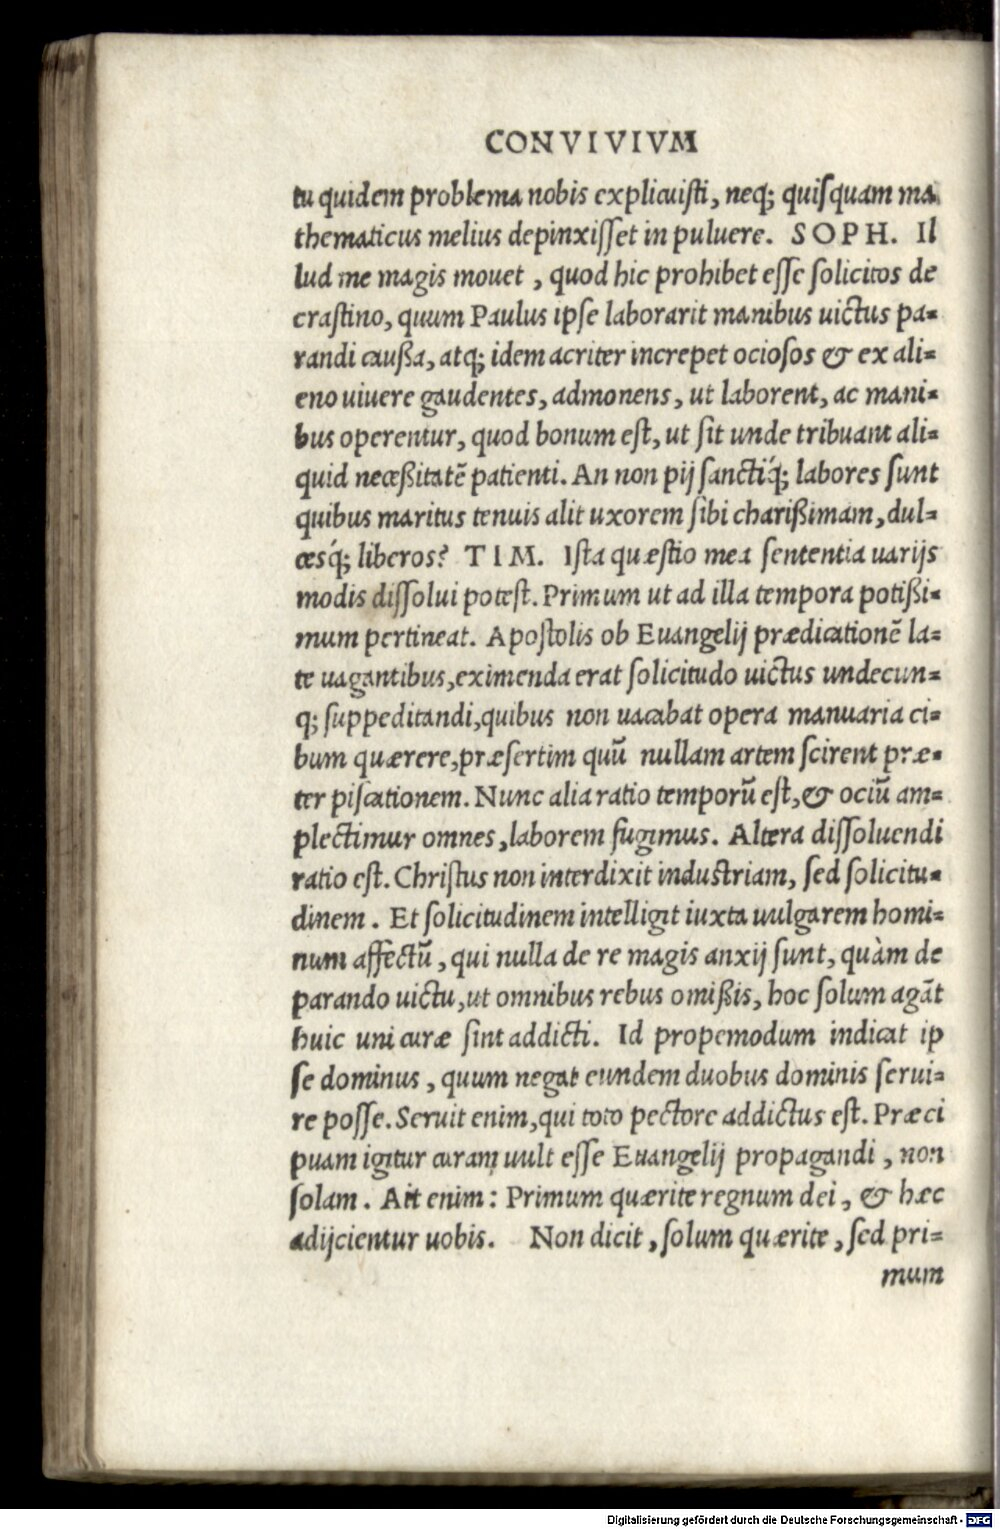 CONVIVIVM
tu quidem problema nobis explicuisti, neq; quisquam ma
thematicus melius depinxisset in puluere. SOPH. Il
lud me magis mouet, quod hic prohibet esse solicitos de
crastino, quum Paulus ipse laborarit manibus uictus pa-
randi caußa, atq; idem acriter increpet ociosos & ex ali-
eno uiuere gaudentes, admonens, ut laborent, ac mani-
bus operentur, quod bonum est, ut sit unde tribuant ali-
quid neceßitatē patienti. An non pij sanctiq́; labores sunt
quibus maritus tenuis alit uxorem sibi charißimam, dul-
cesq́; liberos? TIM. Ista quæstio mea sententia uarijs
modis dissolui potest. Primum ut ad illa tempora potißi-
mum pertineat. Apostolis ob Euangelij prædicationē la-
te uagantibus, eximenda erat solicitudo uictus undecun-
q; suppeditandi, quibus non uacabat opera manuaria ci-
bum quærere, præsertim quū nullam artem scirent præ-
ter piscationem. Nunc alia ratio temporū est, & ociū am-
plectimur omnes, laborem fugimus. Altera dissoluendi
ratio est. Christus non interdixit industriam, sed solicitu-
dinem. Et solicitudinem intelligit iuxta uulgarem homi-
num affectū, qui nulla de re magis anxij sunt, quàm de
parando uictu, ut omnibus rebus omißis, hoc solum agāt
huic uni curæ sint addicti. Id propemodum indicat ip
se dominus, quum negat eundem duobus dominis serui-
re posse. Seruit enim, qui toto pectore addictus est. Præci
puam igitur curam uult esse Euangelij propagandi, non
solam. Ait enim: Primum quærite regnum dei, & hæc
adijcientur uobis. Non dicit, solum quærite, sed pri-
mum
Digitalisierung gefördert durch die Deutsche Forschungsgemeinschaft - DFG